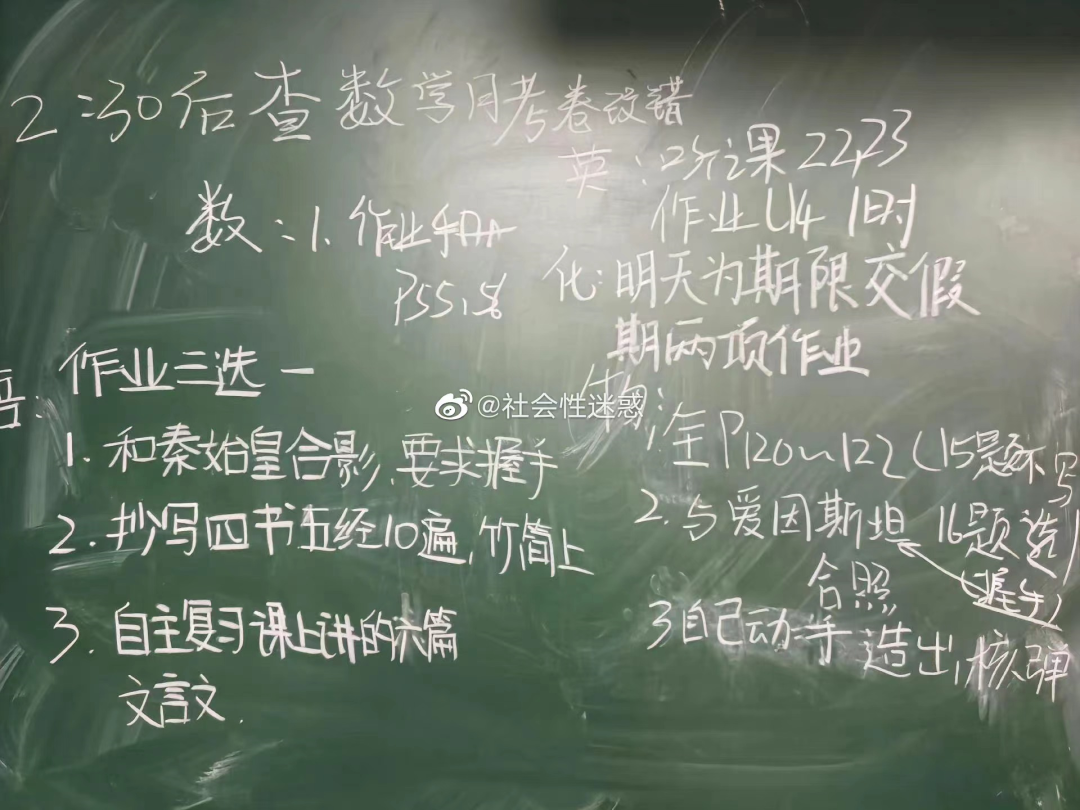 2:30后查数学月考卷改错
英:跨课22,23
作业U4 1时
数:1.作业和
P55,56
化:明天为期限交假
期两项作业
语:作业三选一
1.和秦始皇合影,要求握手
2.抄写四书五经10遍,竹简上
3.自主复习课上讲的六篇
文言文.
@社会性迷惑
物:
全P120~122(15题不写
16题选)
2.与爱因斯坦
合照
(握手)
3自己动手造出,核弹